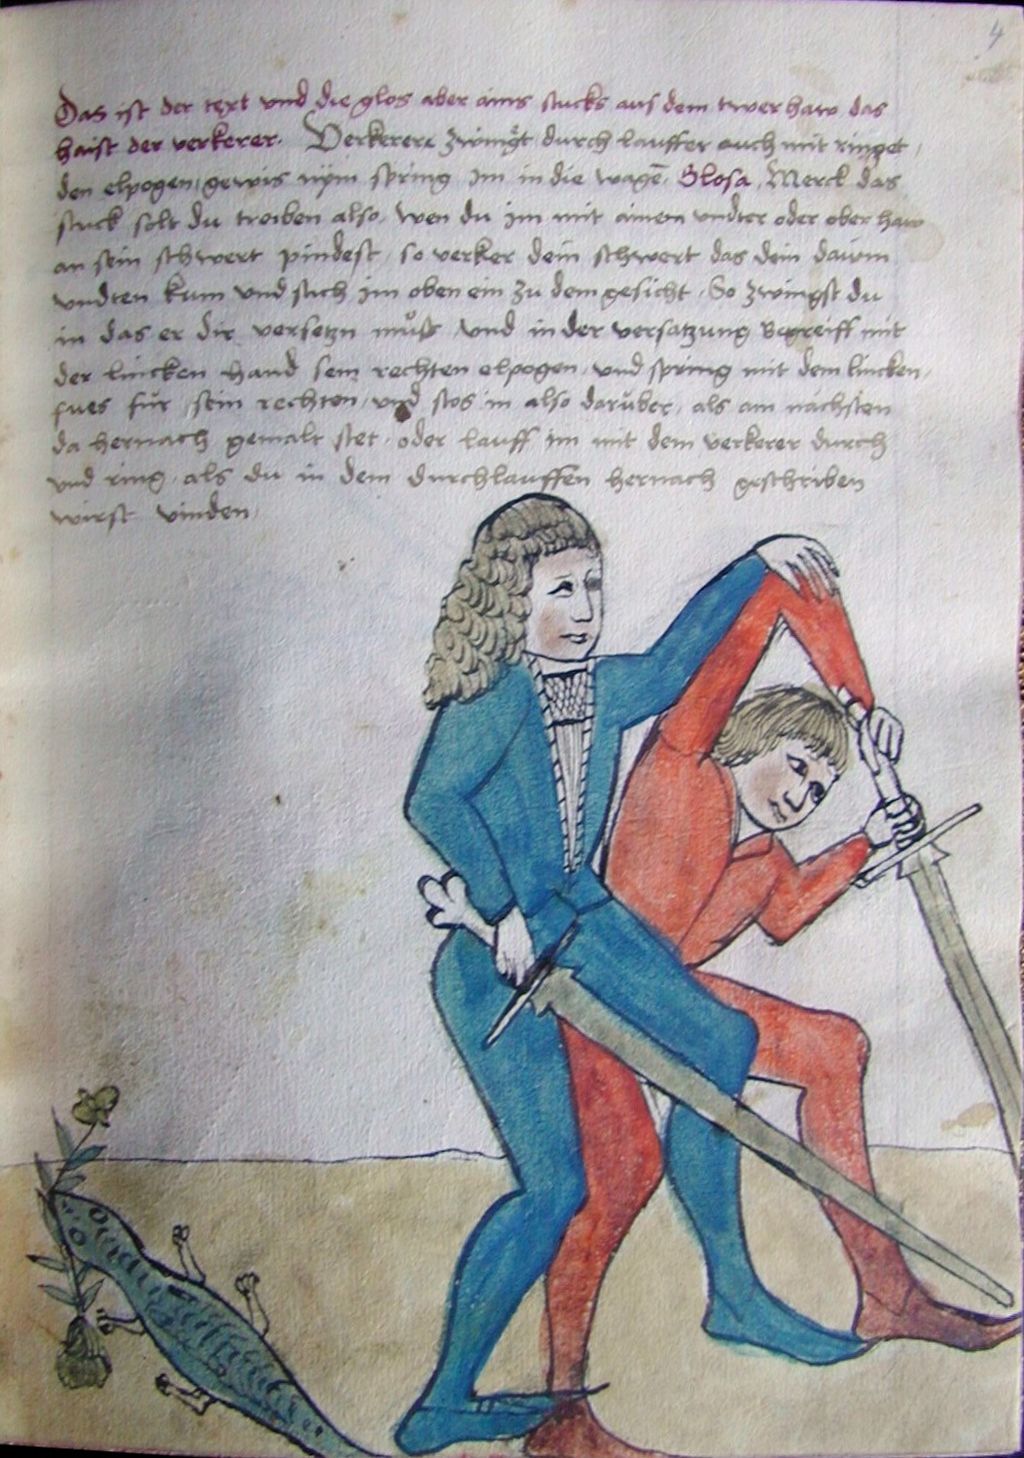 4
Das ist der text vnd die glos aber ains stucks aus dem twer haw das
haist der verkerer. Verkerere zwingt durch lauffer auch mit ringet,
den elpogen gewis nym spring im in die wagē. Glosa, Merck das
stuck solt du treiben also, wen du im mit ainem vndter oder ober haw
an sein schwert pindest, so verker dein schwert das dein dawm
vndten kum vnd stich im oben ein zu dem gesicht, So zwingst du
in das er dir versetzn můst vnd in der versatzung Begreiff mit
der lincken hand sein rechten elpogen, vnd spring mit dem lincken,
fues für sein rechten, vnd stos in also darüber, als am nachsten
da hernach gemalt stet, oder lauff im mit dem verkerer durch
vnd ring, als du in dem durchlauffen hernach geschriben
wirst vinden,